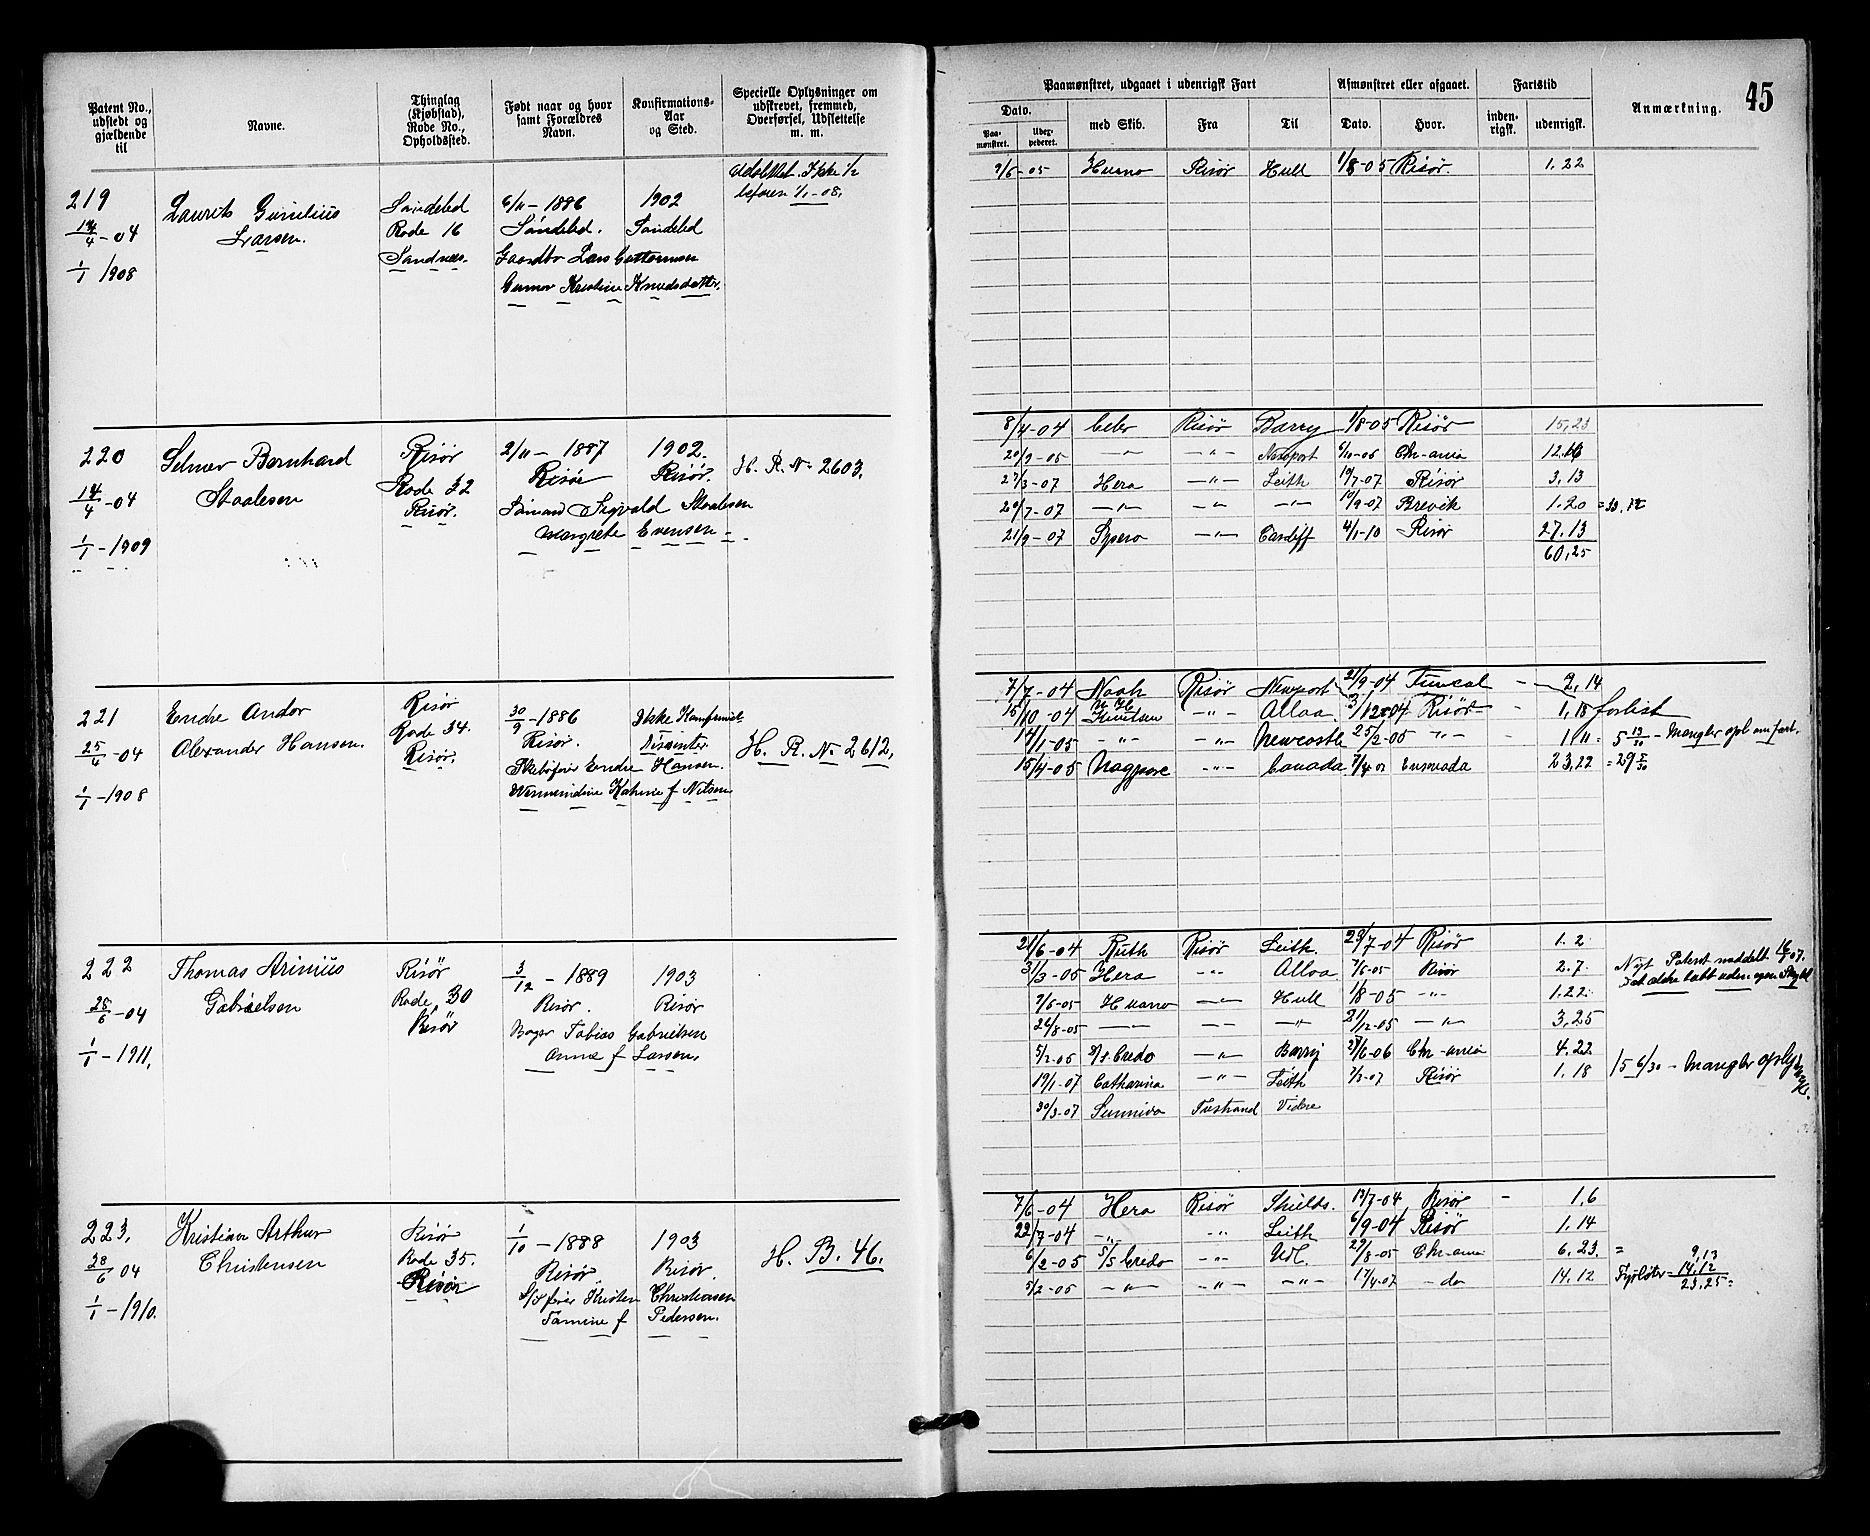 Patent No., udstedt og gjældende til
Navne.
Thinglag (Kjøbstad), Rode No., Opholdssted.
Født naar og hvor samt Forældres Navn.
Konfirmations-Aar og Sted.
Specielle Oplysninger om udskrevet, fremmed, Overførsel, Udslettelse m. m.
Paamønstret, udgaaet i udenrigsk Fart
Afmønstret eller afgaaet.
Fartstid
Anmærkning.
45
Dato.
Paa-mønstret.
Uder-beberet.
med Skib.
Fra
Til
Dato.
Hvor.
inden-rigsk.
udenrigsk.
219
14/4 - 04
1/1 1908
Laurits Gunelius
Larsen.
Søndeled
Rode 16
Sandnes.
6/11 - 1886
Søndeled.
Gaardbr Lars Guttormsen
Gunnor Kristine Knudsdatter.
1902
Søndeled
Udslettet. Ikke
1/1 - 08.
9/6 - 05 Huano Risör Hull 1/8-05 Risör. 1.22
220
14/4 - 04
1/1 - 1909
Selmer Bernhard
Staalesen
Risör
Rode 32
Risör.
2/11 - 1887
Risör
Sigvald Staalesen
Margrethe Evensen
1902.
Risör.
H. R. No 2603.
8/4-04 Ceber Risör Barry 1/8-05 Risör 15,23
20/9-05 -"- -"- Newport 6/10-06 Chr-ania 12.16
27/3-07 Hera -"- Leith 19/7-07 Risör 3.13
20/7-07 -"- -"- -"- 10/9-07 Brevik 1.20
21/9-07 Spero -"- Cardiff 4/1-10 Risör 27.13
60,25
221
25/4 - 04
1/1 - 1908
Endre Andor
Alexander Hansen.
Risör
Rode 34.
Risör.
30/9 - 1886
Risör.
Skibsfører Endre Hansen.
Katrine f Nilsen
Ikke Konfirmert
Dissenter
H. R. No 2612,
7/7-04 Noah Risör Newport 21/9-04 Funcal - 2,14
15/10-04 Knutsen -"- Alloa 3/12-04 Risör - 1,18 forlist
14/1-05 -"- -"- Newcastle 25/2-05 -"- - 1 11 = 5 13/30 - Mangler opl om fart.
15/4-05 Nagpore -"- Canada 7/4 07 Ensenada 23,22 = 29 5/30
222
28/6 - 04
1/1 - 1911,
Thomas Arinius
Gabrielsen
Risör
Rode 30
Risör
3/12 - 1889
Risör.
Bager Tobias Gabrielsen
Anna f Larsen,
1903
Risör
21/6-04 Ruth Risör Leith. 23/7-04 Risör 1. 2
31/3-05 Hera -"- Alloa 7/6-05 Risör 2. 7.
9/6-05 Huano -"- Hull 1/8-05 -"- 1.22.
26/8-05 -"- -"- -"- 21/12-05 -"- 3,25
5/2-06 S/S Credo -"- Barry 27/6-06 Chr-ania 4.22
19/1-07 Catharina -"- Leith 7/3-07 Risör 1. 18
30/3-07 Sunniva Tvestrand Vidre
Nyt Patent meddelt
15 6/30 - Mangler
223.
28/6 04
1/1 - 1910.
Kristian Arthur
Christensen
Risör
Rode 35.
Risör
1/10 - 1888
Risör
Kristen Christensen
Tomine f Pedersen.
1903
Risör.
H. B. 46.
7/6-04 Hera Risör Shields. 13/7-04 Risör - 1,6
22/7-04 -"- -"- Leith 6/9-04 Risör 1.14
6/2-05 S/S Credo -"- Udl. 29/8-05 Chr-ania 6,23. = 9,13
5/2-06 -"- -"- -"- 17/4-07 - do 14.12 Fyrböter - 14,12
23,25 =